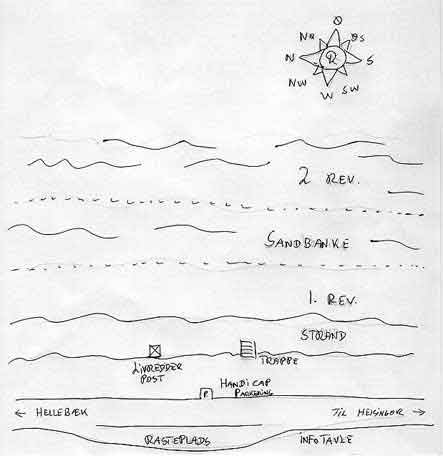 Ø
NØ
ØS
N
R
S
NW
SW
W
2 REV.
SANDBANKE
1. REV.
STRAND
LIVREDDER
POST
TRAPPE
HANDICAP
PARKERING
P
← HELLEBÆK
TIL HELSINGØR →
RASTEPLADS
INFOTAVLE